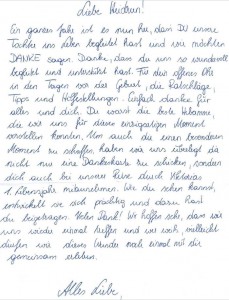 Liebe Heidrun!
Ein ganzes Jahr ist es nun her, dass DU unsere
Tochter ins Leben begleitet hast und wir möchten
DANKE sagen. Danke, dass du uns so wundervoll
begleitet und unterstützt hast. Für dein offenes Ohr
in den Tagen vor der Geburt, die Ratschläge,
Tipps und Hilfestellungen. Einfach danke für
alles und dich. Du warst die beste Hebamme,
die wir uns für diesen einzigartigen Moment
vorstellen konnten. Um auch dir einen besonderen
Moment zu schaffen, haben wir uns überlegt dir
nicht nur eine Dankeskarte zu schicken, sondern
dich auch bei unserer Reise durch
1. Lebensjahr mitzunehmen. Wie du sehen kannst,
entwickelt sie sich prächtig und dazu hast
du beigetragen. Vielen Dank! Wir hoffen sehr, dass wir
uns wieder einmal treffen und wer weiß, vielleicht
dürfen wir dieses Wunder noch einmal mit dir
gemeinsam erleben.
Alles Liebe